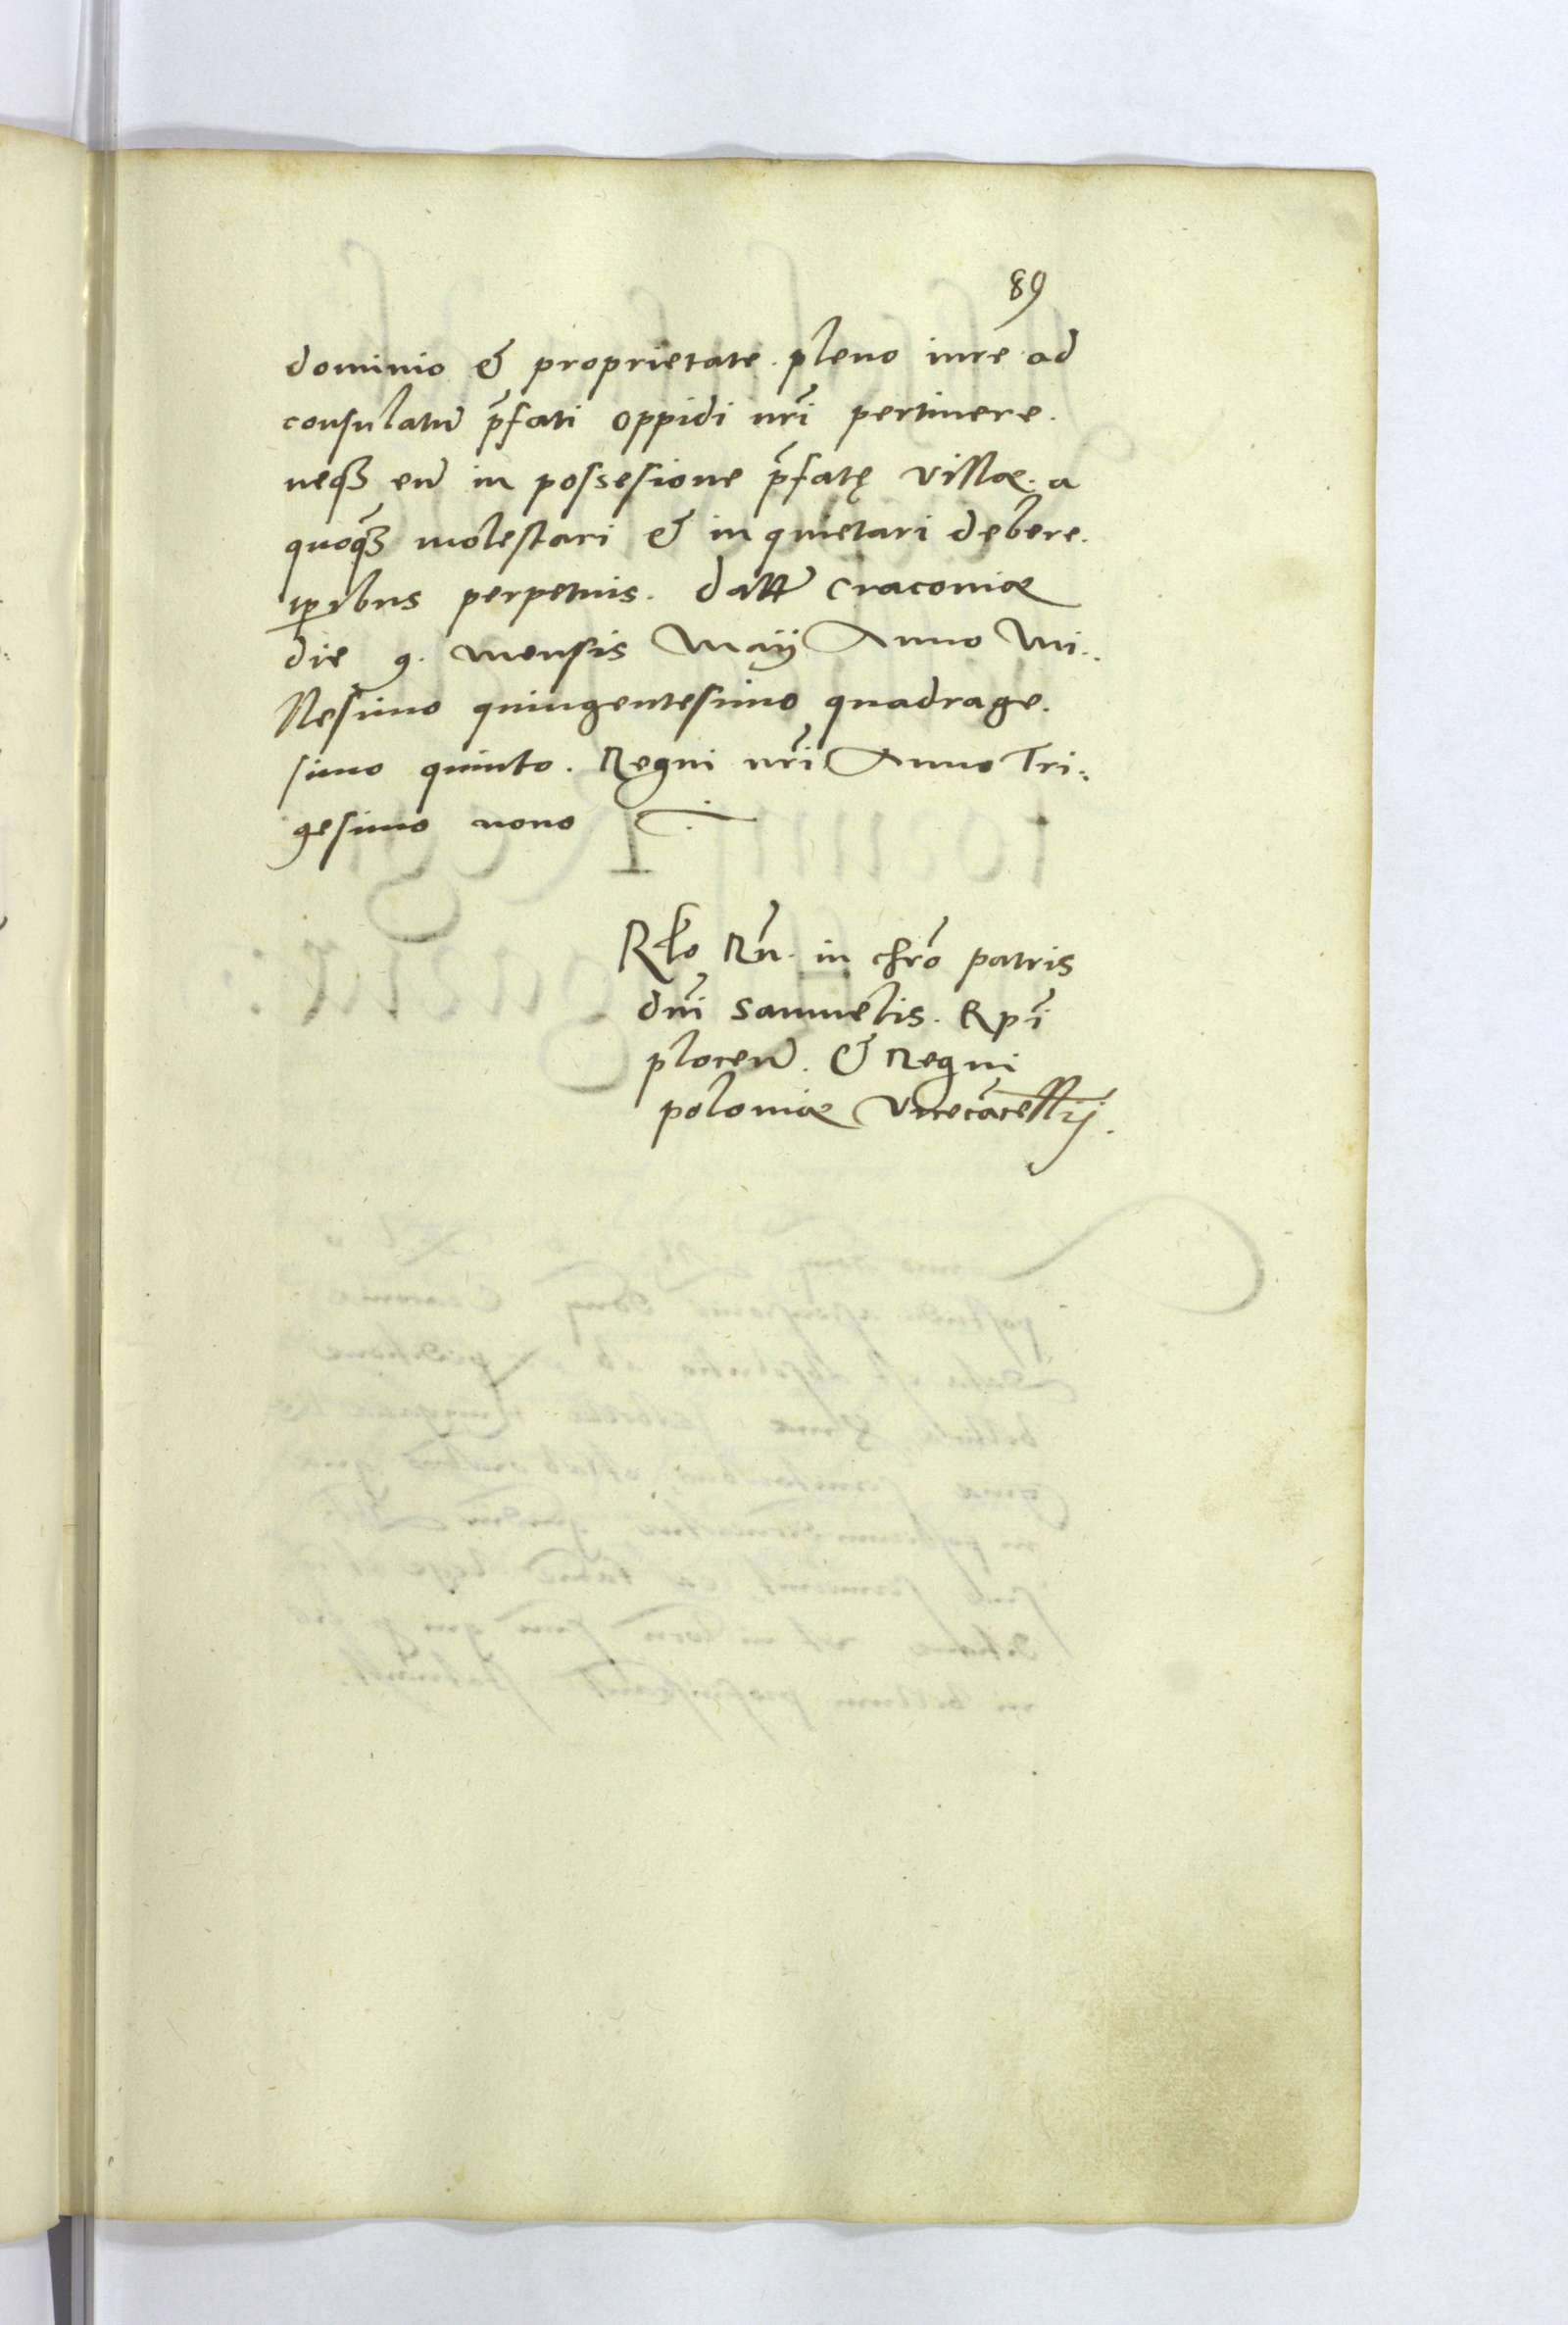 89
dominio & proprietate. pleno iure ad
consulatū p̄fati oppidi nr̄i pertinere.
neqȝ eū in possesione p̄fatę villæ. a
quoqȝ̄ molestari & in quietari debere.
tp̱ribus perpetuis. datt̄ Cracoviæ
die 9. mensis Maÿ Anno Mi..
llesimo quingentesimo quadrage.
simo quinto. Regni nr̄i Anno Tri:
gesimo nono
Rl̄o Rn̄. in chr̄o patris
dn̄i Samuelis. Ep̄i
plocen̄. & Regni
poloniæ vicecācellij.